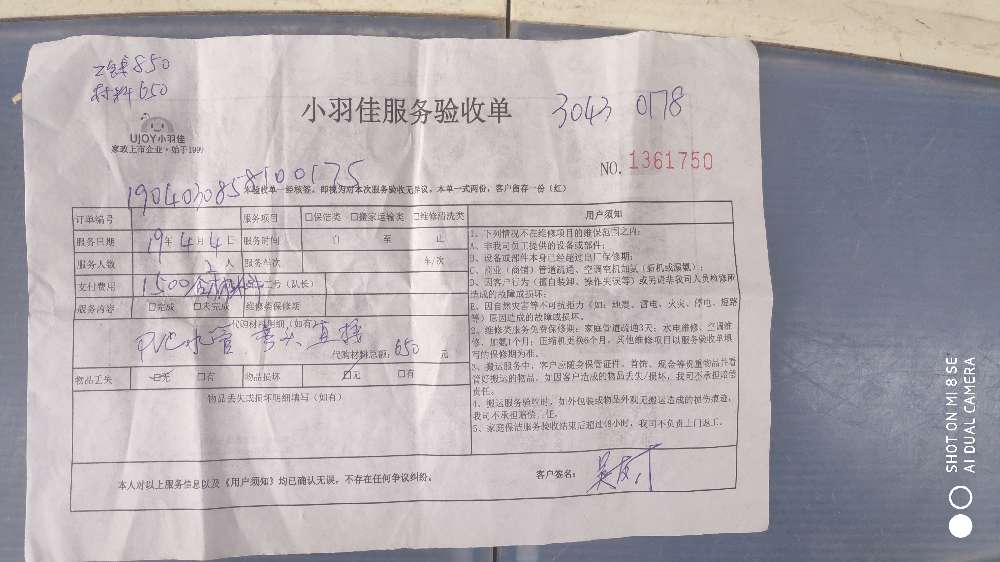 工钱850
材料650
小羽佳服务验收单
3043 0178
UJOY小羽佳
家政上市企业·始于1997
NO. 1361750
1904030858100175
本验收单一经核签，即视为对本次服务验收无异议，本单一式两份，客户留存一份（红）
订单编号 服务项目 □保洁类 □搬家运输类 □维修清洗类
服务日期 19年4月4日 服务时间 自 至 止
服务人数 2人 服务车次 车/次
支付费用 1500 工号（队长）
服务内容 □完成 □未完成 维修类保修期
代购材料明细（如有）
PVC水管 弯头 直接
代购材料总额：650 元
物品丢失 □无 □有 物品损坏 □无 □有
物品丢失或损坏明细填写（如有）
用户须知
1、下列情况不在维修项目的维保范围之内：
A、非我司员工提供的设备或部件；
B、设备或部件本身已经超过出厂保修期；
C、商业（商铺）管道疏通、空调空机加氟（新机或漏氟）；
D、因客户行为（擅自装卸、操作失误等）或另请非我司人员检修所
造成的故障或损坏；
E、因自然灾害等不可抗拒力（如：地震、雷电、火灾、停电、短路
等）原因造成的故障或损坏。
2、维修类服务免费保修期：家庭管道疏通3天；水电维修、空调维
修、加氟1个月；压缩机更换6个月，其他维修项目以服务验收单填
写的保修期为准。
3、搬运服务中，客户应随身保管证件、首饰、现金等贵重物品并看
管好搬运的物品，如因客户造成的物品丢失/损坏，我司不承担赔偿
责任。
4、搬运服务验收时，如外包装或物品外观无搬运造成的损伤痕迹，
我司不承担赔偿责任。
5、家庭保洁服务验收结束后超过48小时，我司不负责上门返工。
本人对以上服务信息以及《用户须知》均已确认无误，不存在任何争议纠纷。
客户签名：
SHOT ON MI 8 SE
AI DUAL CAMERA